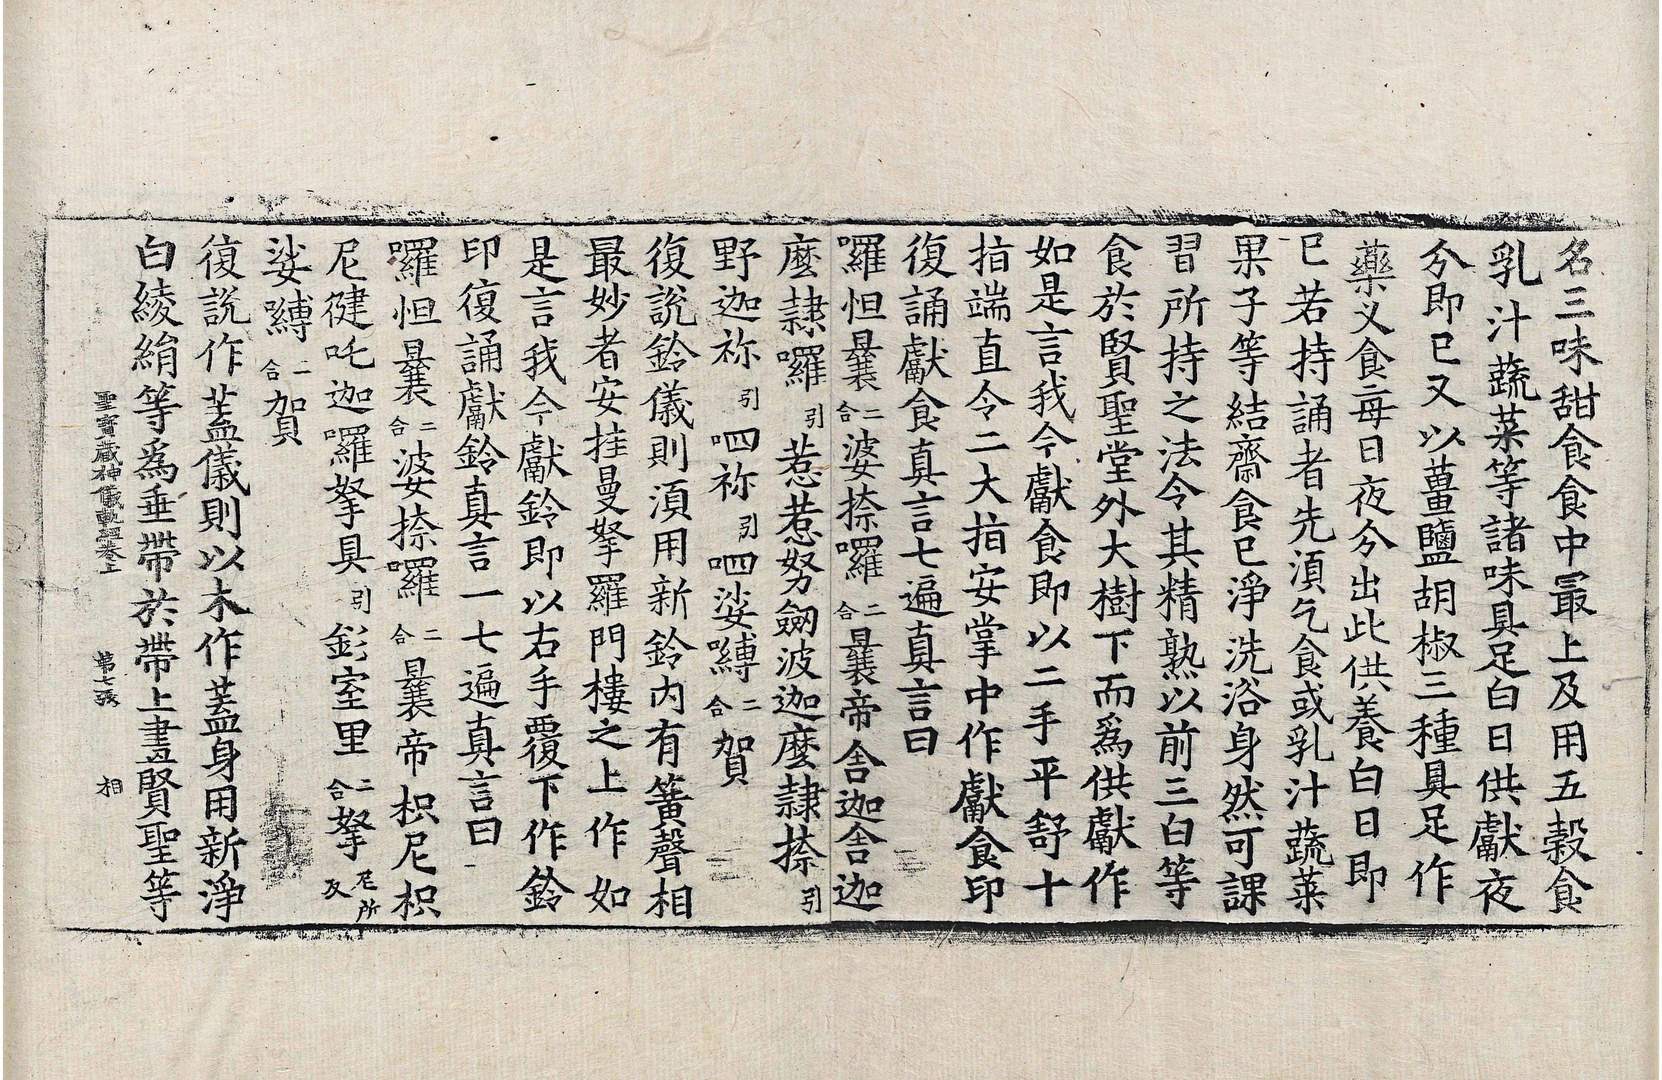 名三味甜食食中最上及用五穀食
乳汁蔬菜等諸味具足白日供獻夜
分即已又以薑鹽胡椒三種具足作
藥叉食每日夜分出此供養白日即
已若持誦者先須乞食或乳汁蔬菜
果子等結齋食已淨洗浴身然可課
習所持之法令其精熟以前三白等
食於賢聖堂外大樹下而爲供獻作
如是言我今獻食即以二手平舒十
指端直令二大指安掌中作獻食印
復誦獻食真言七遍真言曰
囉怛曩二合婆捺囉二合曩帝舍迦舍迦
麼隷囉引惹惹努劒波迦麼隷捺引
野迦祢引呬祢引呬娑嚩二合賀
復說鈴儀則須用新鈴內有簧聲相
最妙者安挂曼拏羅門樓之上作如
是言我今獻鈴即以右手覆下作鈴
印復誦獻鈴真言一七遍真言曰
囉怛曩二合婆捺囉二合曩帝枳尼枳
尼徤吒迦囉拏具引釤室里二合拏尼所反
娑嚩二合賀
復說作盖儀則以木作蓋身用新淨
白綾絹等爲垂帶於帶上畫賢聖等
聖寶藏神儀軌經卷上 第七張 相